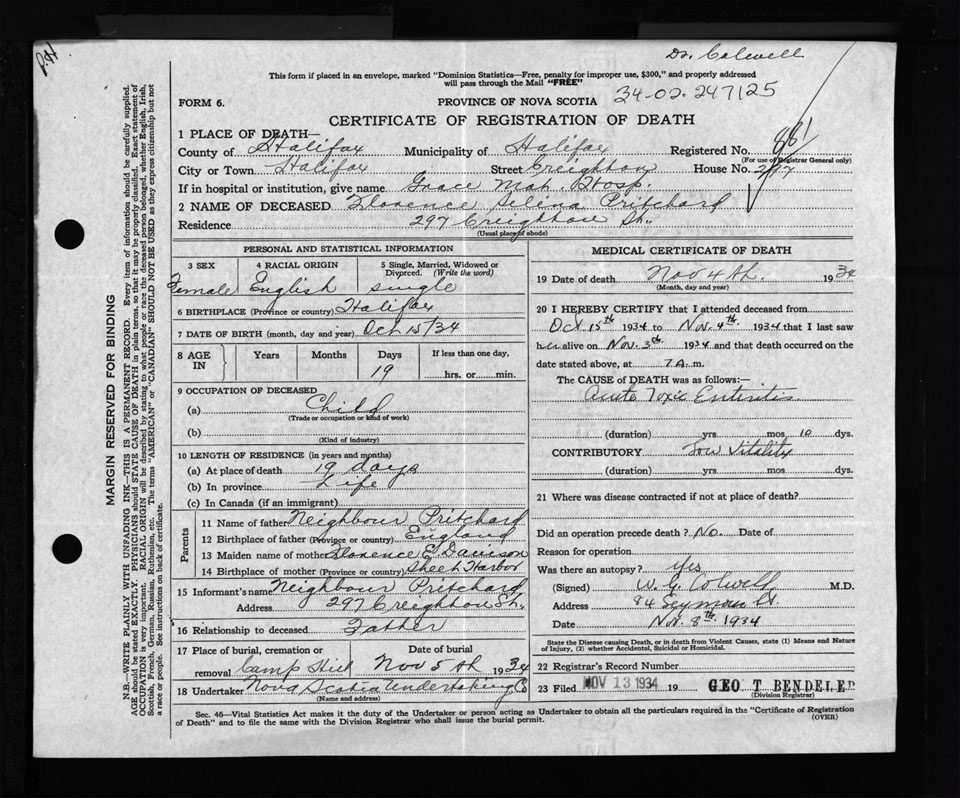 P.H
Dr. Colwell
This form if placed in an envelope, marked "Dominion Statistics—Free, penalty for improper use, $300," and properly addressed
will pass through the Mail "FREE"
FORM 6.
PROVINCE OF NOVA SCOTIA
34-02-247125
CERTIFICATE OF REGISTRATION OF DEATH
1 PLACE OF DEATH—
County of Halifax Municipality of Halifax Registered No. 881
(For use of Registrar General only)
City or Town Halifax Street Creighton House No. 297
If in hospital or institution, give name Grace Mat. Hosp.
2 NAME OF DECEASED Florence Selena Pritchard
Residence 297 Creighton St.
(Usual place of abode)
PERSONAL AND STATISTICAL INFORMATION
3 SEX 4 RACIAL ORIGIN 5 Single, Married, Widowed or
Divorced. (Write the word)
Female English single
6 BIRTHPLACE (Province or country) Halifax
7 DATE OF BIRTH (month, day and year) Oct 15/34
8 AGE IN Years Months Days If less than one day,
19 hrs. or min.
9 OCCUPATION OF DECEASED
(a) Child
(Trade or occupation or kind of work)
(b)
(Kind of industry)
10 LENGTH OF RESIDENCE (in years and months)
(a) At place of death 19 days
(b) In province Life
(c) In Canada (if an immigrant)
Parents
11 Name of father Neighbour Pritchard
12 Birthplace of father (Province or country) England
13 Maiden name of mother Florence E. Davison
14 Birthplace of mother (Province or country) Sheet Harbor
15 Informant's name Neighbour Pritchard
Address 297 Creighton St.
16 Relationship to deceased Father
17 Place of burial, cremation or Date of burial
removal Camp Hill Nov 5th 1934
18 Undertaker Nova Scotia Undertaking Co
(Name and address)
MEDICAL CERTIFICATE OF DEATH
19 Date of death Nov 4th. 1934
(Month, day and year)
20 I HEREBY CERTIFY that I attended deceased from
Oct. 15th 1934 to Nov. 4th 1934 that I last saw
her alive on Nov. 3rd 1934 and that death occurred on the
date stated above, at 7 A. m.
The CAUSE OF DEATH was as follows:—
Acute Toxic Enteritis
(duration) yrs mos 10 dys.
CONTRIBUTORY Low Vitality
(duration) yrs. mos. dys.
21 Where was disease contracted if not at place of death?
Did an operation precede death? No. Date of
Reason for operation
Was there an autopsy? Yes
(Signed) W. G. Colwell M.D.
Address 84 Seymour St.
Date Nov. 8th 1934
State the Disease causing Death, or in death from Violent Causes, state (1) Means and Nature
of Injury, (2) whether Accidental, Suicidal or Homicidal.
22 Registrar's Record Number
23 Filed NOV 13 1934 19 GEO. T. BENDELER
(Division Registrar)
Sec. 46—Vital Statistics Act makes it the duty of the Undertaker or person acting as Undertaker to obtain all the particulars required in the "Certificate of Registration
of Death" and to file the same with the Division Registrar who shall issue the burial permit. (OVER)
MARGIN RESERVED FOR BINDING
N.B.—WRITE PLAINLY WITH UNFADING INK—THIS IS A PERMANENT RECORD. Every item of information should be carefully supplied.
AGE should be stated EXACTLY. PHYSICIANS should STATE CAUSE OF DEATH in plain terms, so that it may be properly classified. Exact statement of
OCCUPATION is very important. RACIAL ORIGIN will be described by stating to what people or race the deceased person belonged, whether English, Irish,
Scottish, French, German, Russian, Ruthenian, etc. The terms "AMERICAN" or "CANADIAN" SHOULD NOT BE USED as they express citizenship but not
a race or people. See instructions on back of certificate.